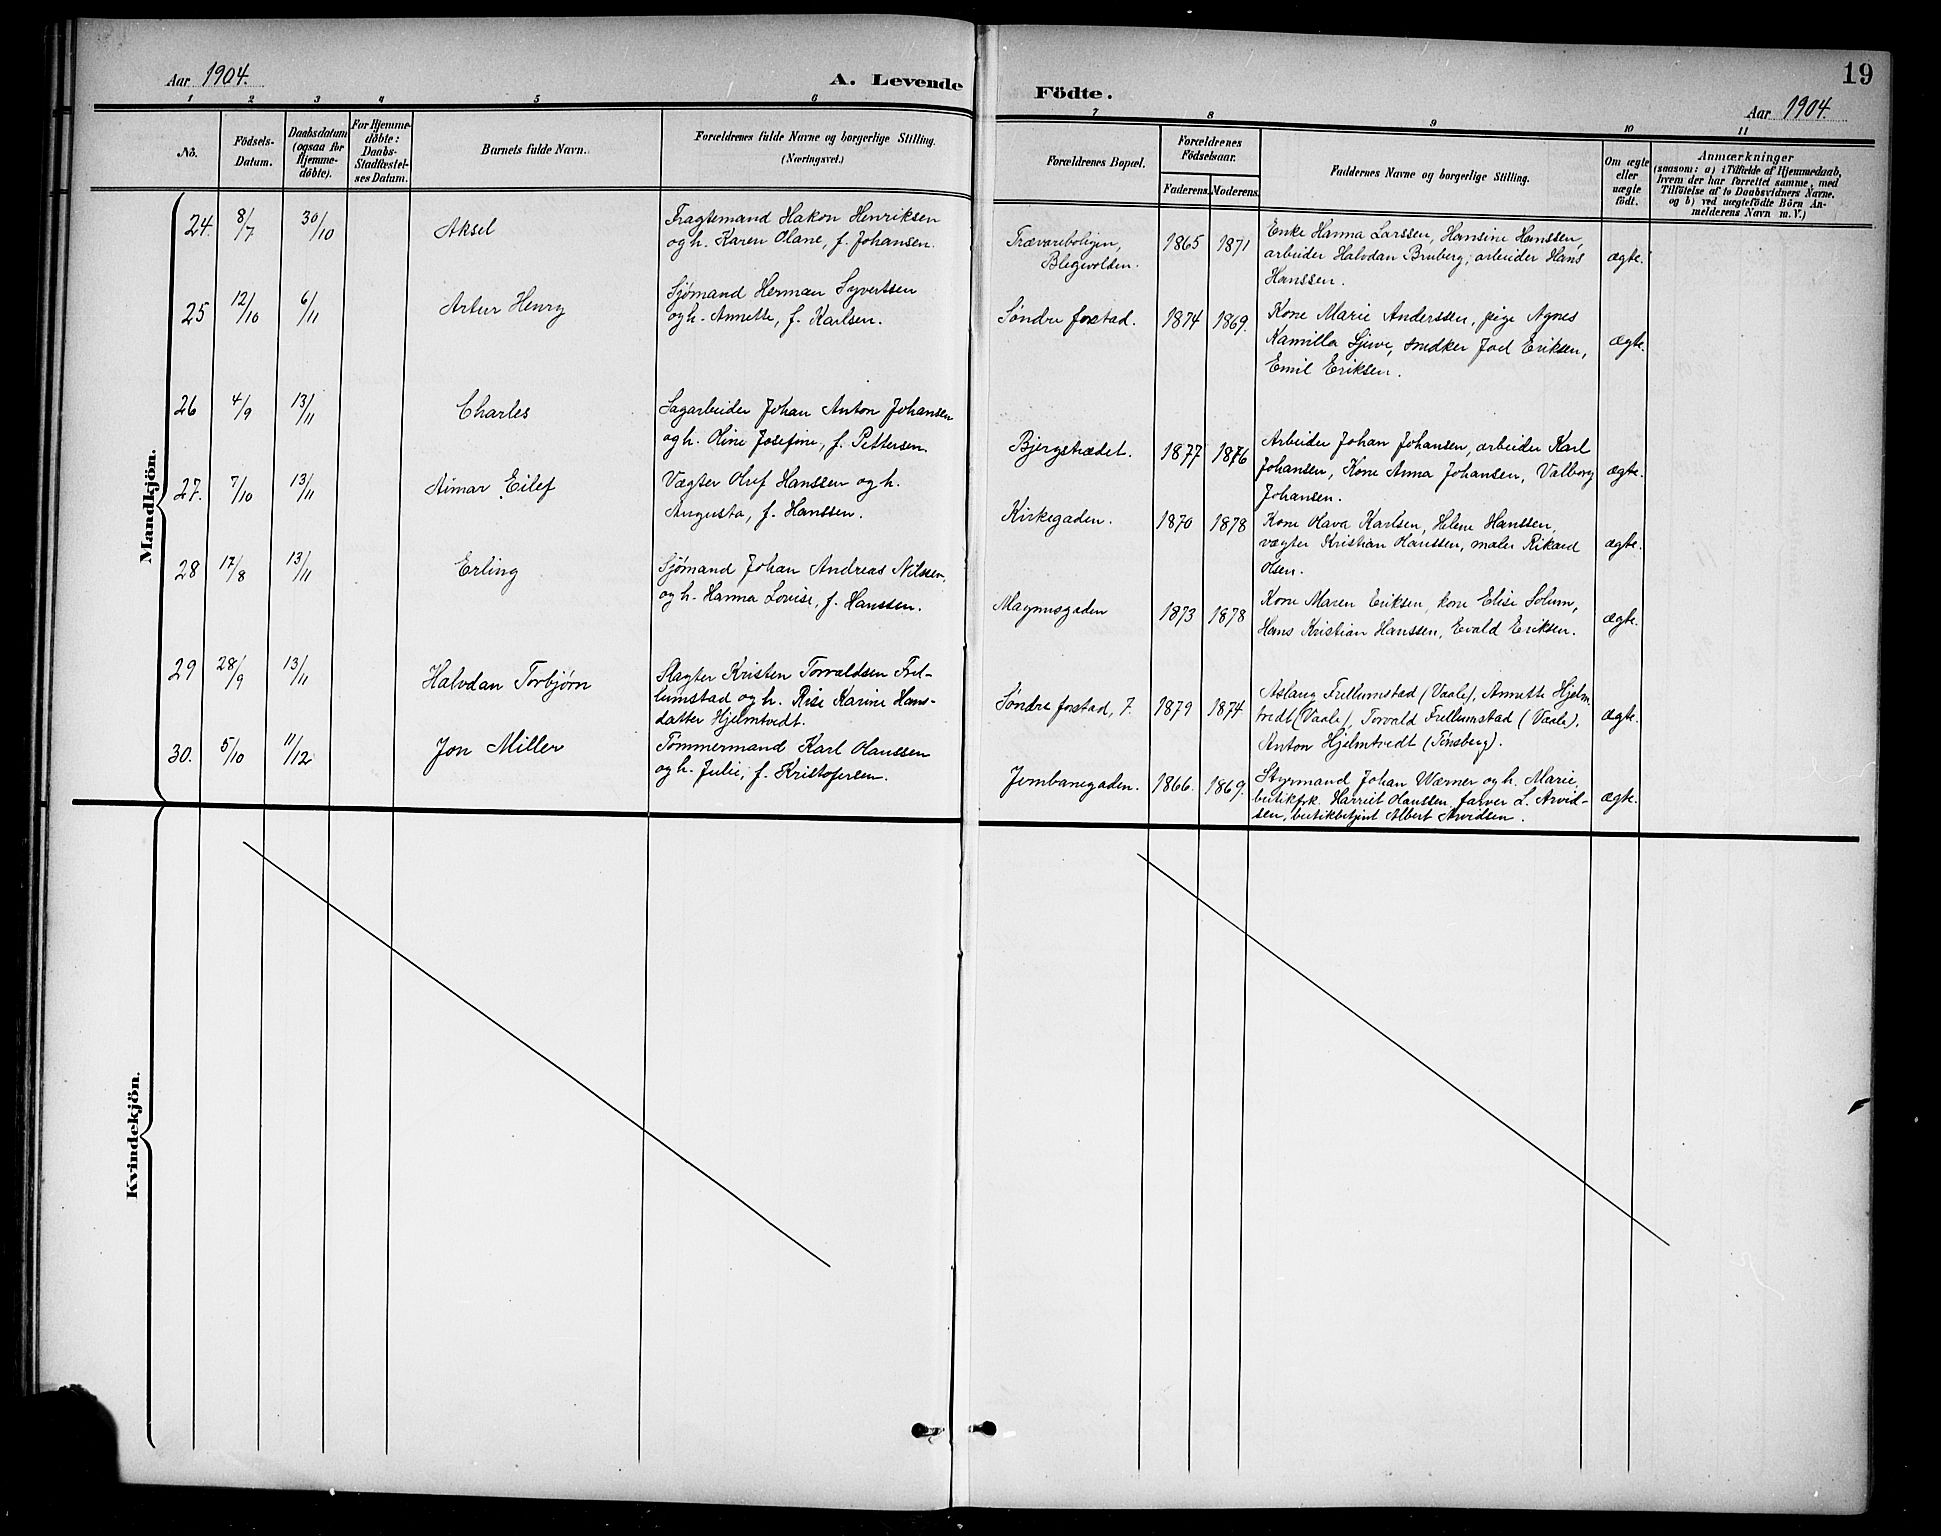 Aar 1904.
A. Levende
1 2 3 4 5 6
No.
Födsels-
Datum.
Daabsdatum
(ogsaa for
Hjemme-
døbte).
For Hjemme-
døbte:
Daabs-
Stadfæstel-
ses Datum.
Barnets fulde Navn.
Forældrenes fulde Navne og borgerlige Stilling.
(Næringsvei.)
Mandkjön.
24. 8/7 30/10 Aksel
Fragtemand Hakon Henriksen
og h. Karen Olane, f. Johansen.
25 12/10 6/11 Artur Henry
Sjømand Herman Syvertsen
og h. Annette, f. Karlsen.
26 4/9 13/11 Charles
Sagarbeider Johan Anton Johansen
og h. Oline Josefine, f. Pettersen
27. 7/10 13/11 Aimar Eilef
Vægter Oluf Hanssen og h.
Augusta, f. Hanssen.
28 17/8 13/11 Erling
Sjømand Johan Andreas Nilssen,
og h. Hanna Lovise, f. Hanssen.
29 28/9 13/11 Halvdan Torbjørn
Slagter Kristen Torvaldsen Frel-
lumstad og h. Rise Karine Hans-
datter Hjelmtvedt.
30. 5/10 11/12 Jon Miller
Tømmermand Karl Olaussen
og h. Julie, f. Kristofersen.
Kvindekjön.
19
Födte.
Aar 1904.
7 8 9 10 11
Forældrenes Bopæl.
Forældrenes
Födselsaar.
Faderens. Moderens.
Faddernes Navne og borgerlige Stilling.
Om ægte
eller
uægte
født.
Anmærkninger
(saasom: a) i Tilfælde af Hjemmedaab,
hvem der har forrettet samme, med
Tilföielse af to Daabsvidners Navne.
og b) ved uægtefödte Börn An-
melderens Navn m. V.)
Trævareboligen,
Blegevolden. 1865 1871
Enke Hanna Larssen, Hansine Hanssen,
arbeider Halvdan Bruberg, arbeider Hans
Hanssen.
ægte.
Søndre forstad. 1874 1869.
Kone Marie Anderssen, pige Agnes
Kamilla Gjeve, snedker Joel Eriksen,
Emil Eriksen.
ægte.
Bjergstrædet. 1877 1876
Arbeider Johan Johansen, arbeider Karl
Johansen, Kone Anna Johansen, Valborg
Johansen.
ægte.
Kirkegaden. 1870 1878
Kone Olava Karlsen, Helene Hanssen,
vægter Kristian Olaussen, maler Rikard
Olsen.
ægte.
Magnusgaden 1873 1878
Kone Maren Eriksen, kone Elise Solum,
Hans Kristian Hanssen, Evald Eriksen.
ægte.
Søndre forstad, 7. 1879 1874
Aslaug Frellumstad (Vaale), Annette Hjelm-
tvedt (Vaale), Torvald Frellumstad (Vaale),
Anton Hjelmtvedt (Tønsberg).
ægte.
Jernbanegaden. 1866. 1869.
Styrmand Johan Wærner og h. Marie,
butikfrk. Harriet Olaussen, farver L. Arvid-
sen, butikbetjent Albert Arvidsen.
ægte.